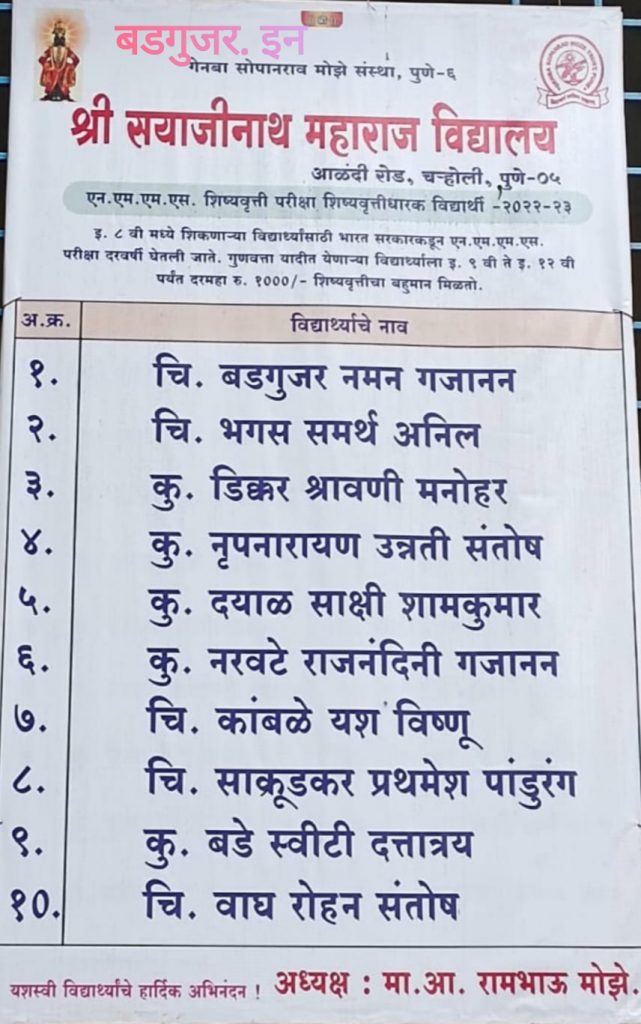 बडगुजर. इन
गेनबा सोपानराव मोझे संस्था, पुणे-६
श्री सयाजीनाथ महाराज विद्यालय
आळंदी रोड, चऱ्होली, पुणे-०५
एन.एम.एम.एस. शिष्यवृत्ती परीक्षा शिष्यवृत्तीधारक विद्यार्थी -२०२२-२३
इ. ८ वी मध्ये शिकणाऱ्या विद्यार्थ्यांसाठी भारत सरकारकडून एन.एम.एम.एस.
परीक्षा दरवर्षी घेतली जाते. गुणवत्ता यादीत येणाऱ्या विद्यार्थ्याला इ. ९ वी ते इ. १२ वी
पर्यंत दरमहा रु. १०००/- शिष्यवृत्तीचा बहुमान मिळतो.
अ.क्र. विद्यार्थ्याचे नाव
१. चि. बडगुजर नमन गजानन
२. चि. भगस समर्थ अनिल
३. कु. डिक्कर श्रावणी मनोहर
४. कु. नृपनारायण उन्नती संतोष
५. कु. दयाळ साक्षी शामकुमार
६. कु. नरवटे राजनंदिनी गजानन
७. चि. कांबळे यश विष्णू
८. चि. साक्रूडकर प्रथमेश पांडुरंग
९. कु. बडे स्वीटी दत्तात्रय
१०. चि. वाघ रोहन संतोष
यशस्वी विद्यार्थ्यांचे हार्दिक अभिनंदन ! अध्यक्ष : मा.आ. रामभाऊ मोझे.